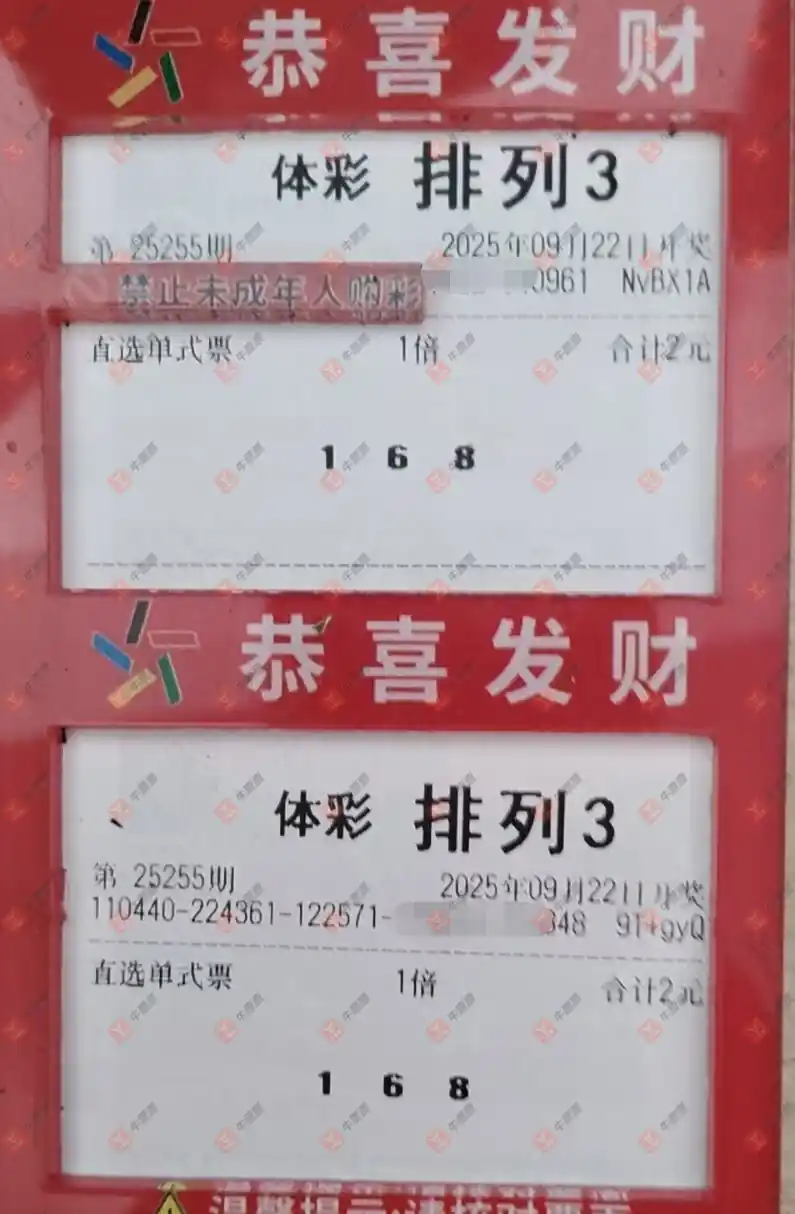 恭喜发财
体彩 排列3
第 25255期 2025年09月22日开奖
禁止未成年人购彩 0961 NvBX1A
直选单式票 1倍 合计2元
1 6 8
恭喜发财
体彩 排列3
第 25255期 2025年09月22日开奖
110440-224361-122571- 348 9T+gyQ
直选单式票 1倍 合计2元
1 6 8
温馨提示:请核对票面